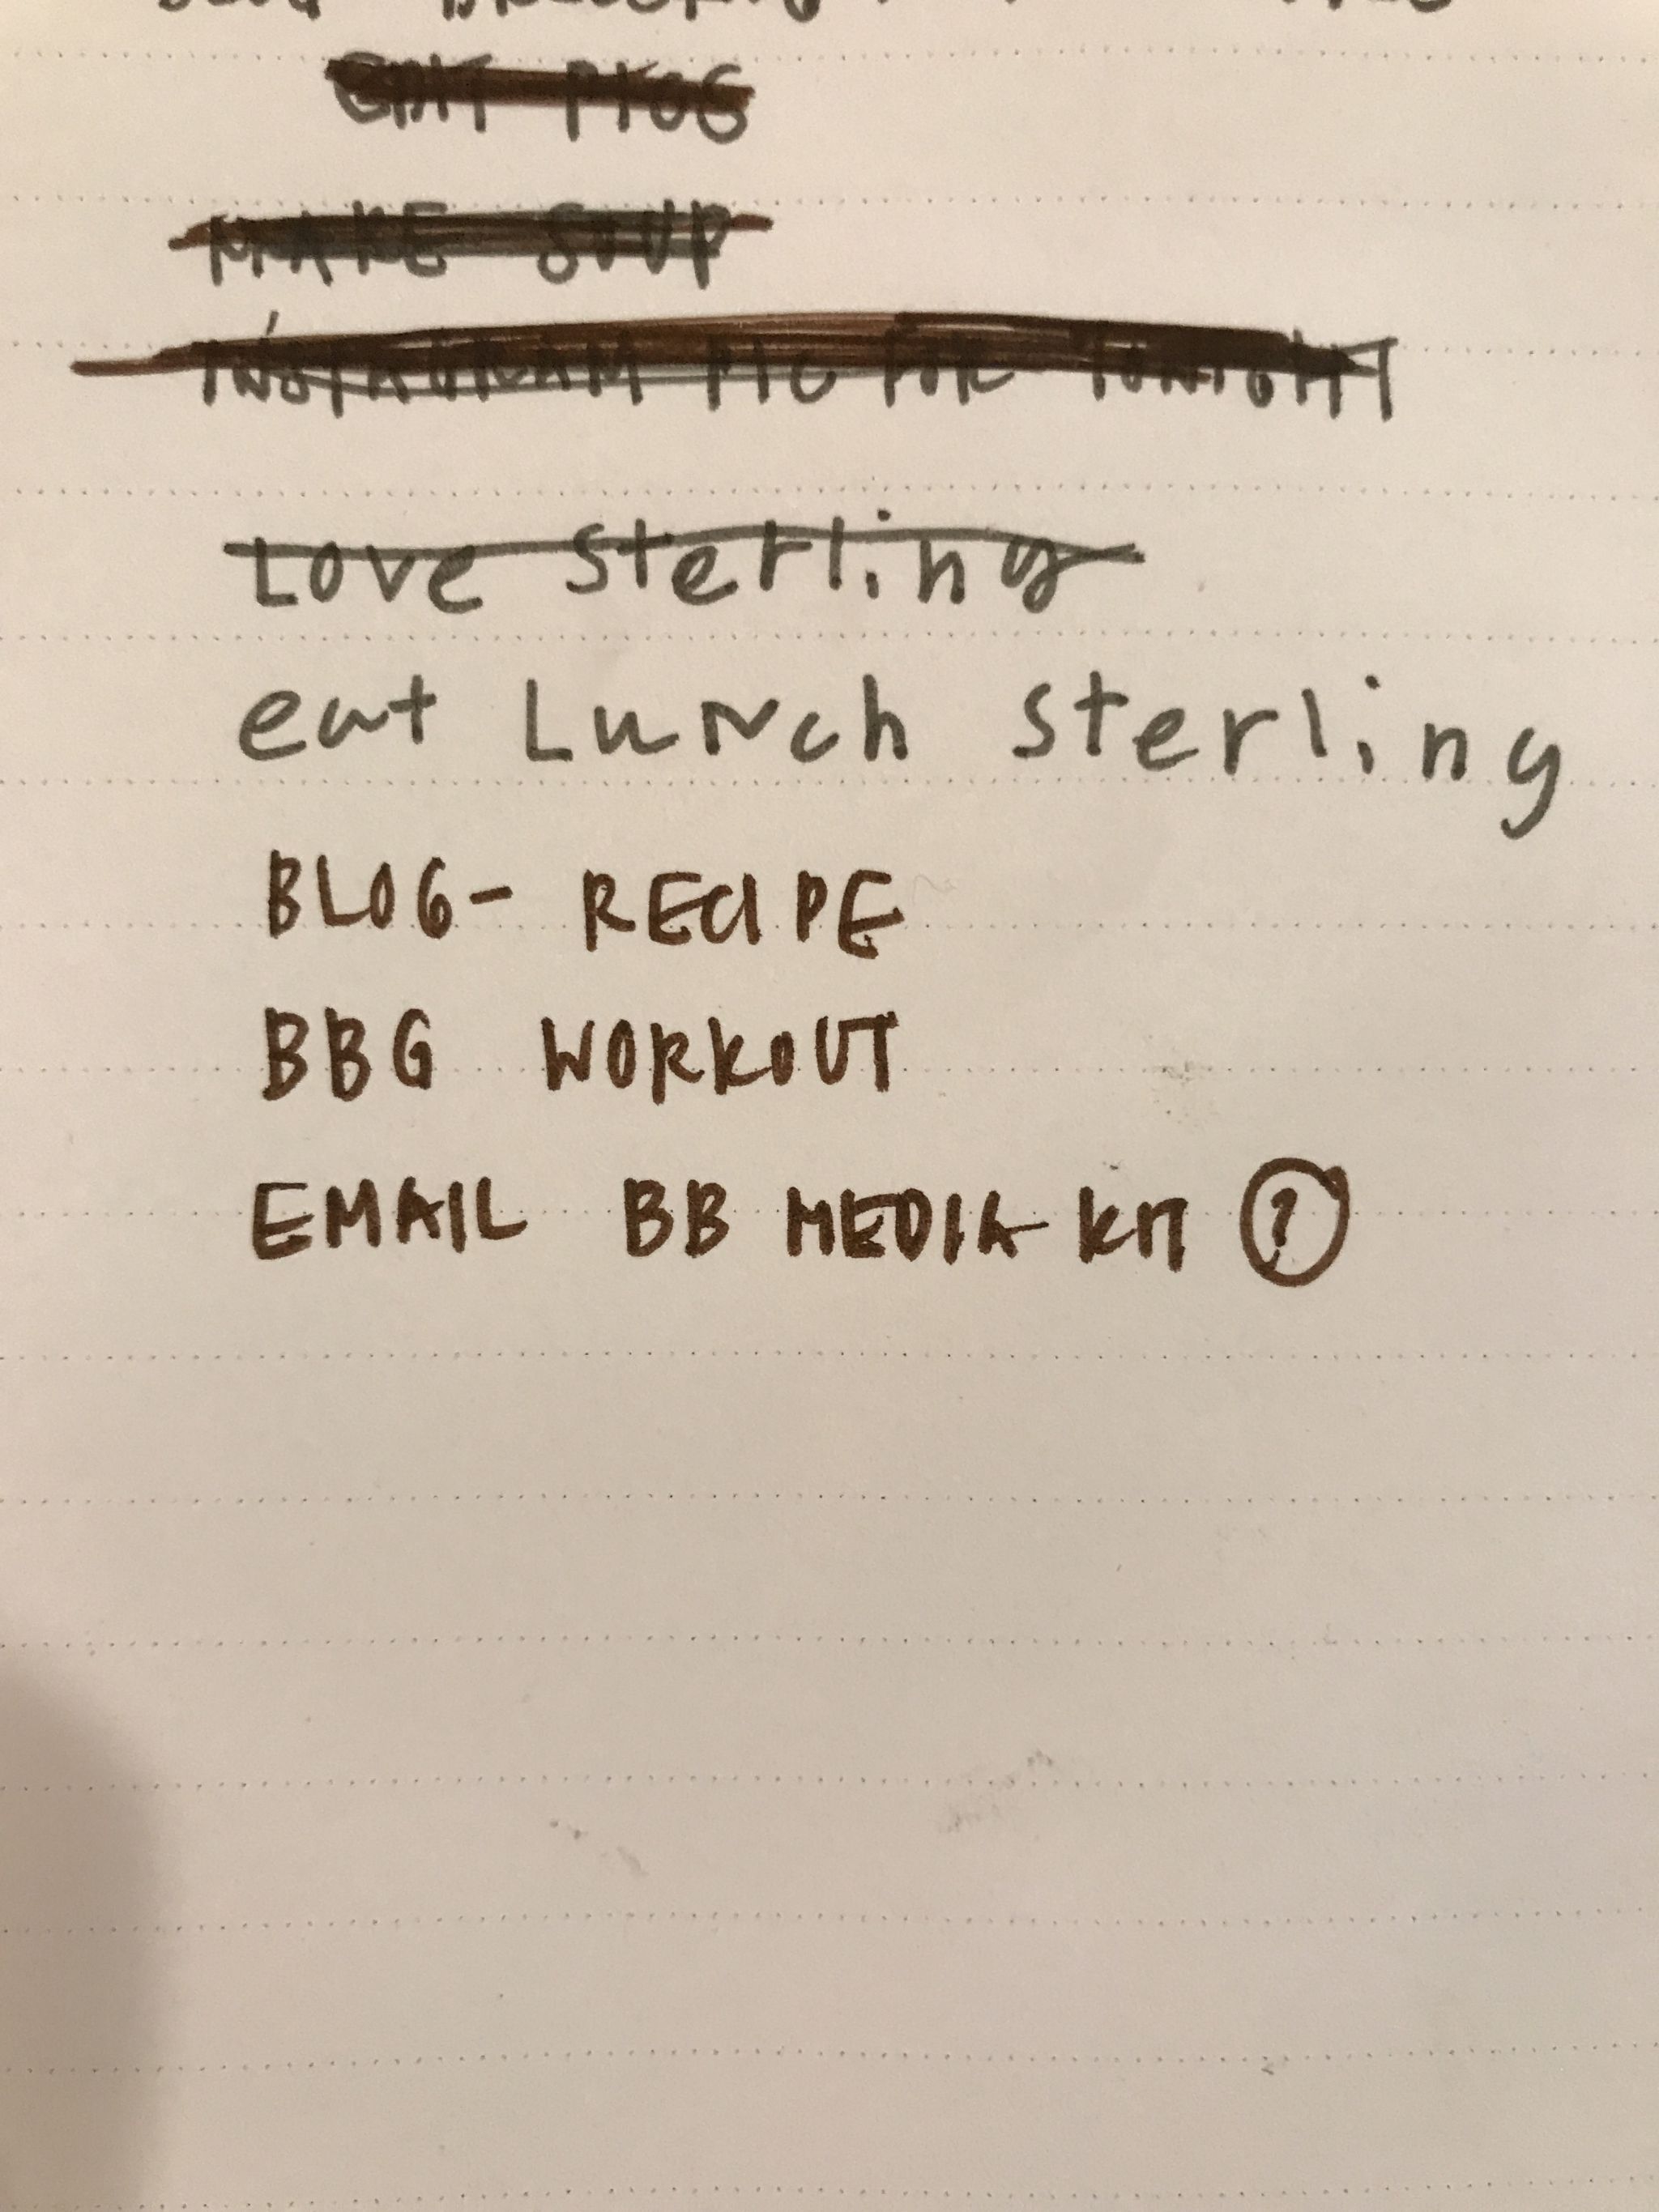 EDIT PICS
MAKE SOUP
INSTAGRAM PIC FOR TONIGHT
Love Sterling
eat Lunch Sterling
BLOG- RECIPE
BBG WORKOUT
EMAIL BB MEDIA KIT ?